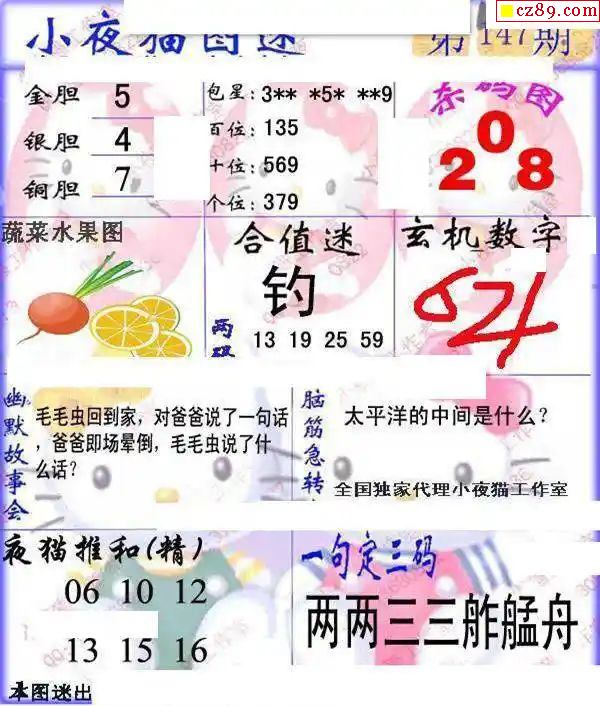 cz89.com
小夜猫图迷
第147期
金胆 5
银胆 4
铜胆 7
包星: 3** *5* **9
百位: 135
十位: 569
个位: 379
杀码图
208
蔬菜水果图
合值迷
钓
两码
13 19 25 59
玄机数字
624
幽默故事会
毛毛虫回到家,对爸爸说了一句话
,爸爸即场晕倒,毛毛虫说了什
么话?
脑筋急转
太平洋的中间是什么?
全国独家代理小夜猫工作室
夜猫推和(精)
06 10 12
13 15 16
一句定三码
两两三三舴艋舟
本图迷出